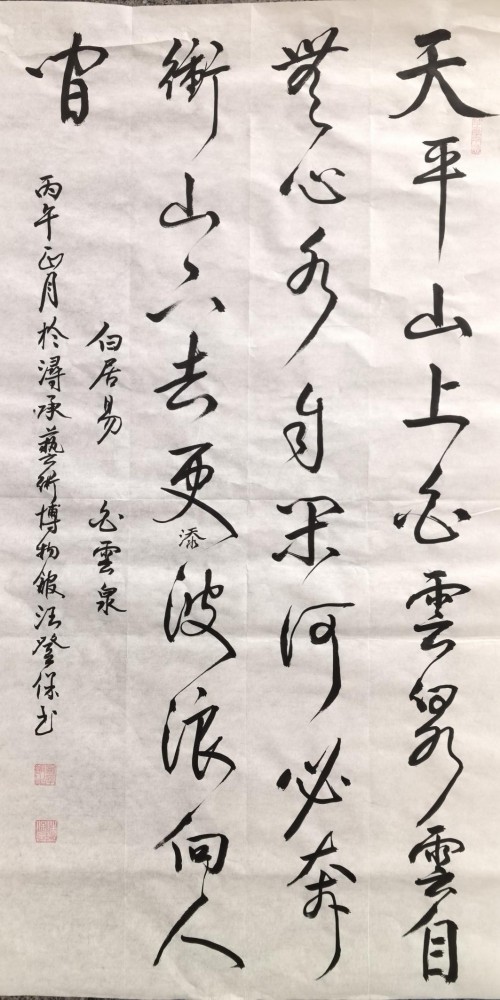 天平山上白雲泉雲自
無心水自閑何必奔
衝山下去更添波浪向人
間
白居易 白雲泉
丙午正月於潯承藝術博物館汪登保书